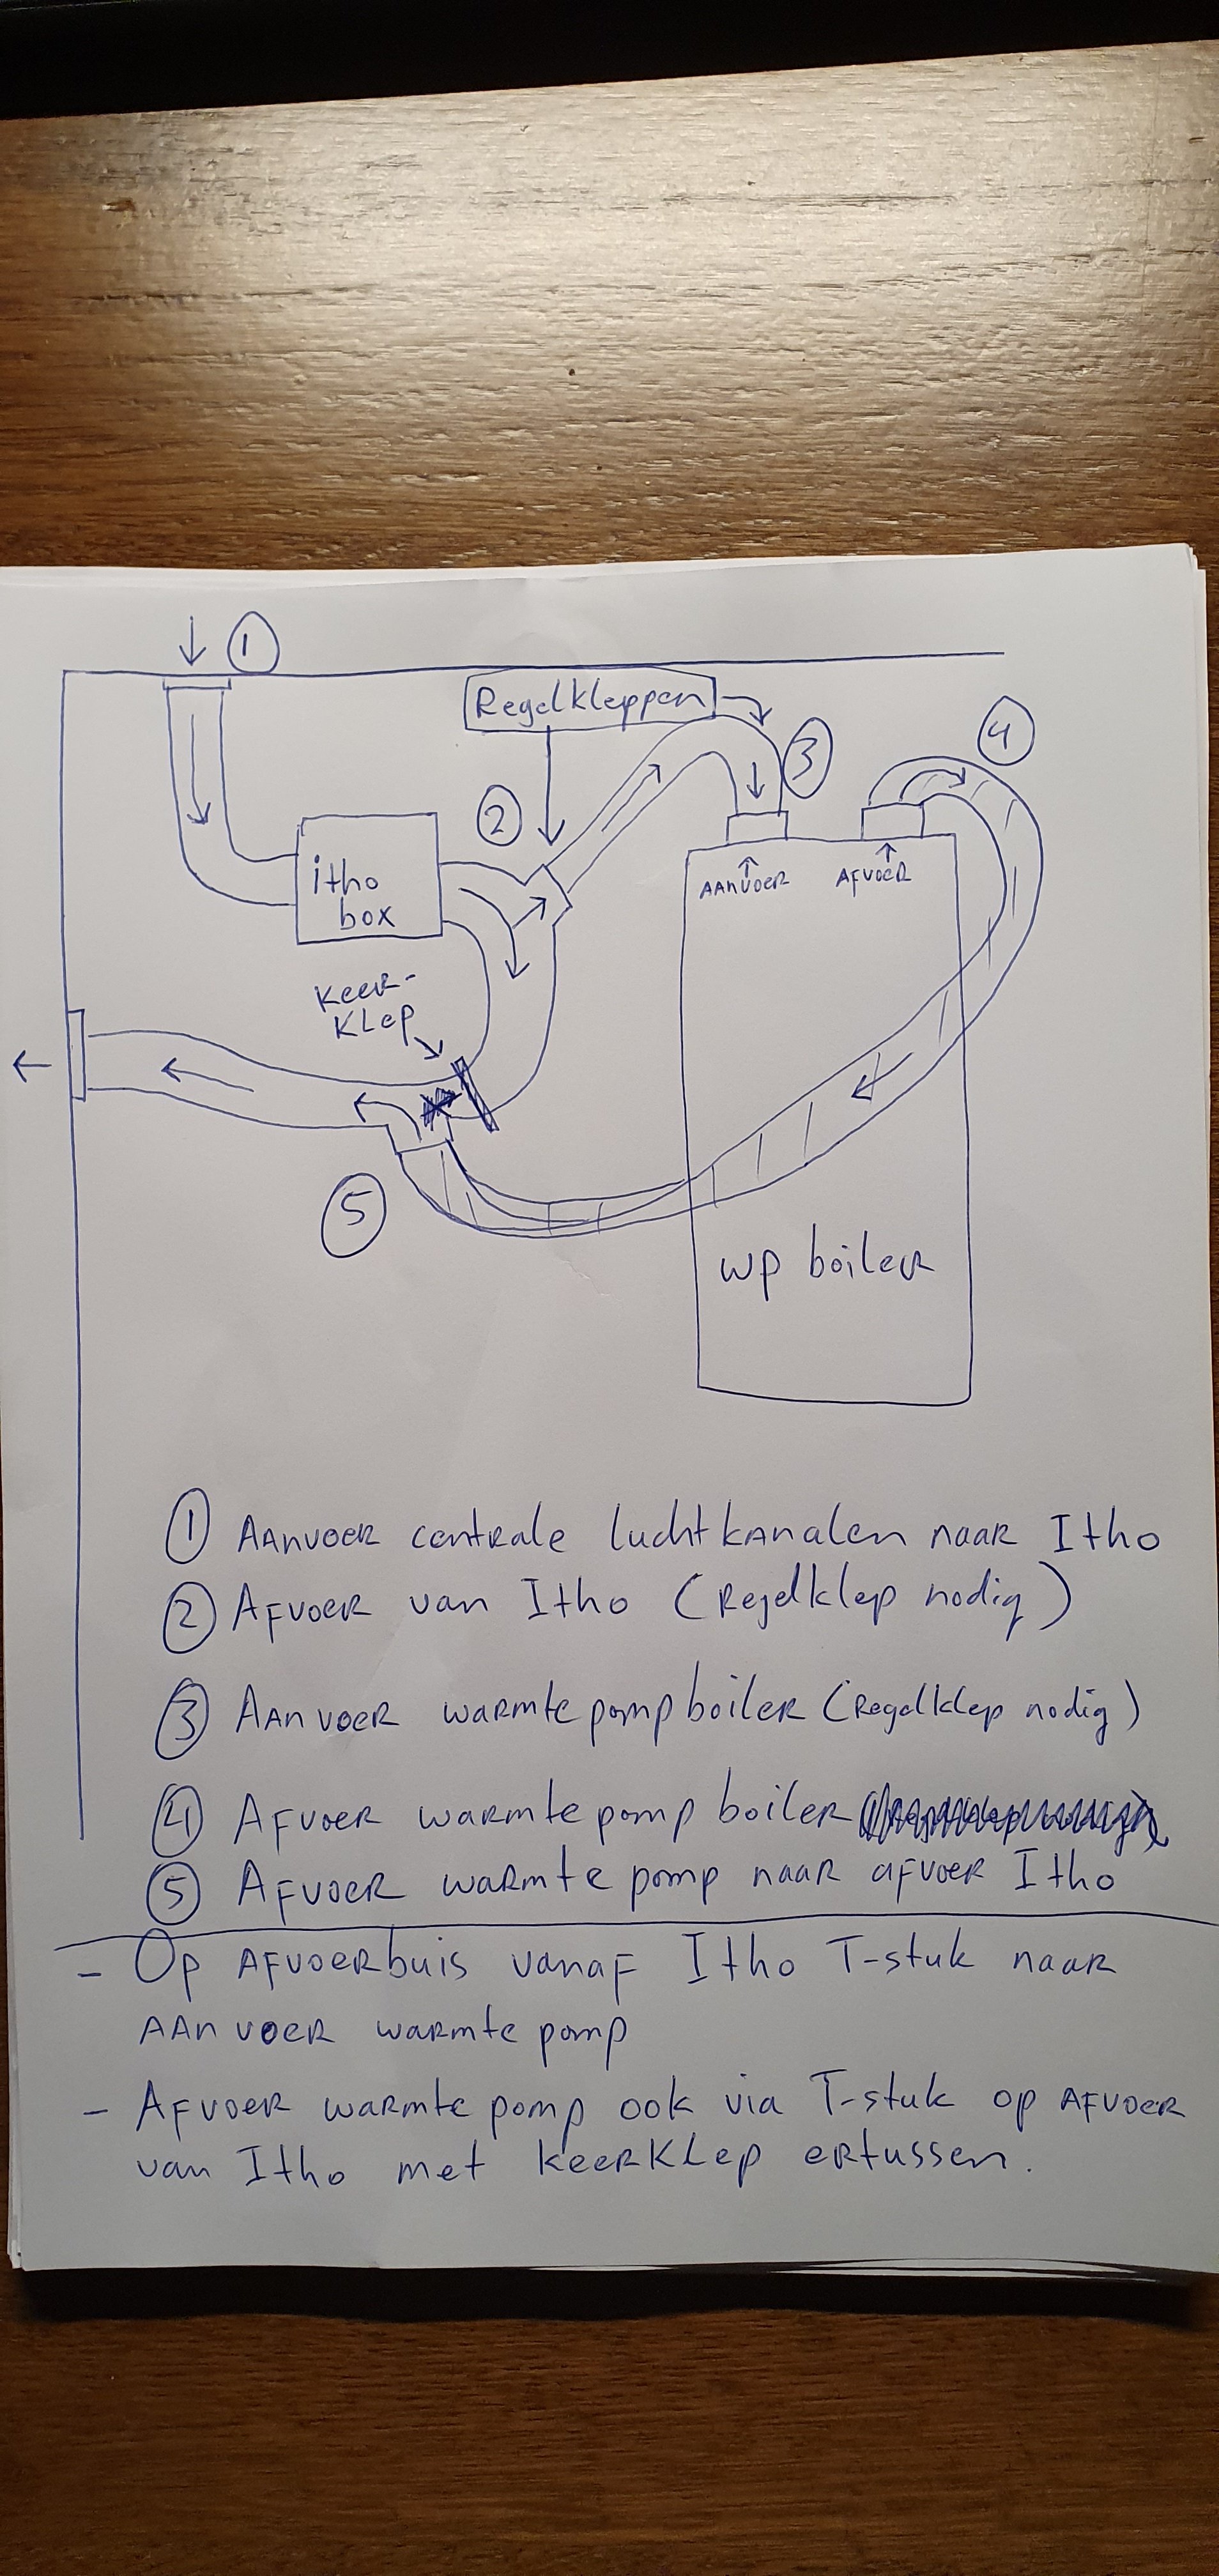 1
Regelkleppen
3
4
2
itho
box
AANVOER
AFVOER
KEER-
KLEP
5
WP boiler
1 AANVOER centrale luchtkanalen naar Itho
2 AFVOER van Itho (Regelklep nodig)
3 AANVOER warmtepompboiler (Regelklep nodig)
4 AFVOER warmtepomp boiler
5 AFVOER warmte pomp naar afvoer Itho
- Op AFVOERbuis vanaf Itho T-stuk naar
AANVOER warmte pomp
- AFVOER warmte pomp ook via T-stuk op AFVOER
van Itho met KEERKLEP ertussen.